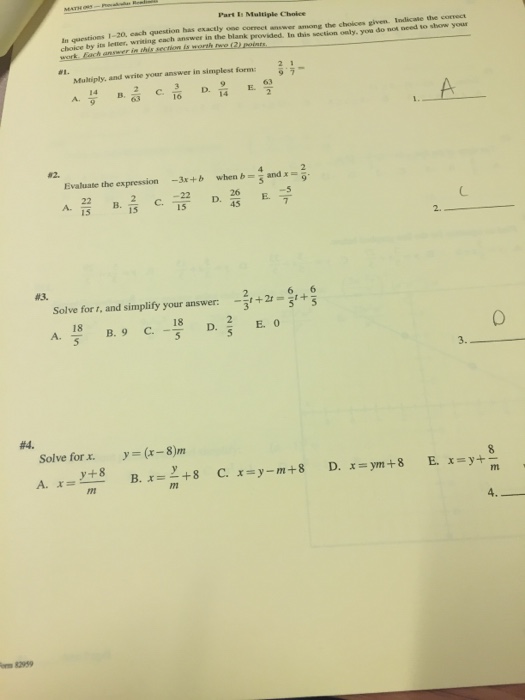 MATH 095 — Precalculus Readiness
Part I: Multiple Choice
In questions 1–20, each question has exactly one correct answer among the choices given. Indicate the correct
choice by its letter, writing each answer in the blank provided. In this section only, you do not need to show your
work. Each answer in this section is worth two (2) points.
#1.
Multiply, and write your answer in simplest form: 2/9 · 1/7 =
A. 14/9 B. 2/63 C. 3/16 D. 9/14 E. 63/2
1. A
#2.
Evaluate the expression −3x + b when b = 4/5 and x = 2/9.
A. 22/15 B. 2/15 C. −22/15 D. 26/45 E. −5/7
2. C
#3.
Solve for t, and simplify your answer: −2/3 t + 2t = 6/5 t + 6/5
A. 18/5 B. 9 C. −18/5 D. 2/5 E. 0
3. D
#4.
Solve for x. y = (x − 8)m
A. x = y+8/m B. x = y/m + 8 C. x = y − m + 8 D. x = ym + 8 E. x = y + 8/m
4.
Form 82959